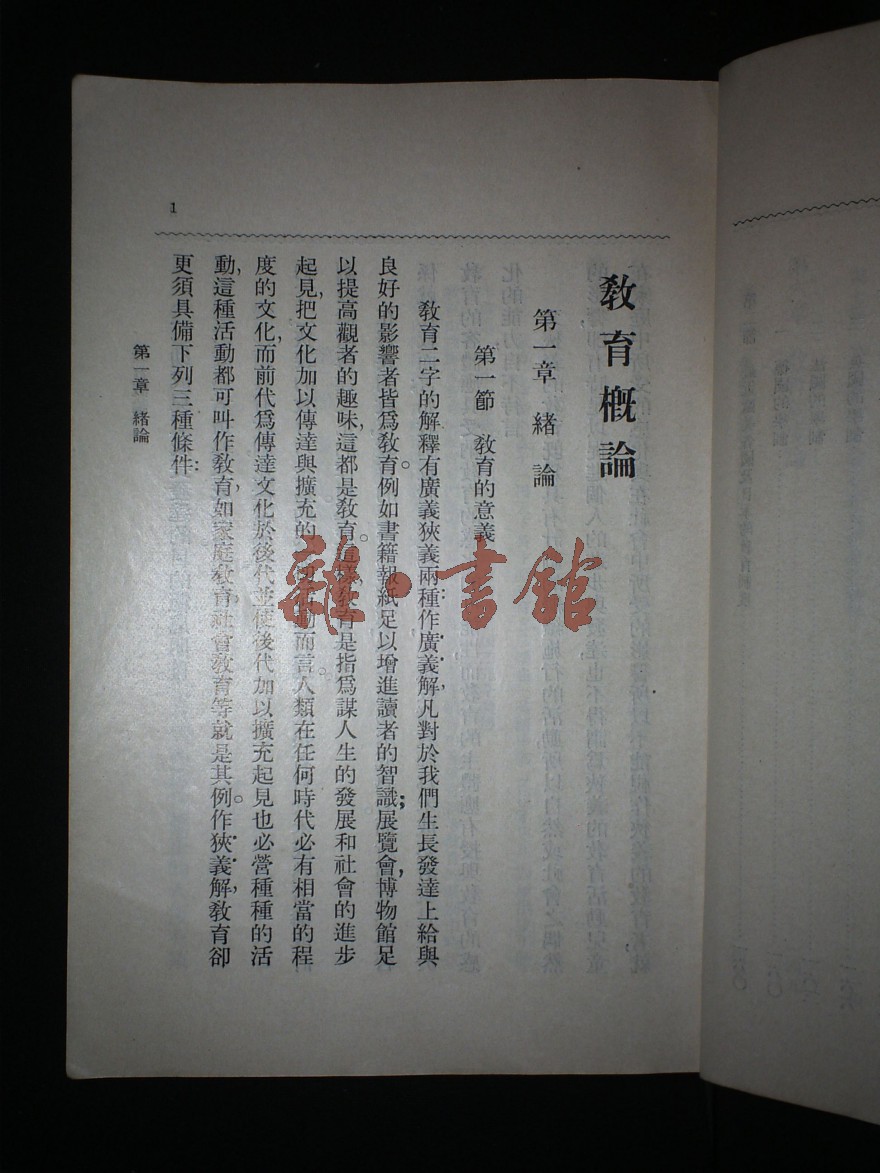 教育概論
第一章 緒論
第一節 教育的意義
教育二字的解釋有廣義狹義兩種:作廣義解,凡對於我們生長發達上給與
良好的影響者皆爲教育。例如書籍報紙足以增進讀者的智識;展覽會,博物館足
以提高觀者的趣味,這都是教育。這樣教育是指爲謀人生的發展和社會的進步
起見,把文化加以傳達與擴充的一切活動而言。人類在任何時代必有相當的程
度的文化,而前代爲傳達文化於後代並使後代加以擴充起見也必營種種的活
動,這種活動都可叫作教育,如家庭教育,社會教育等就是其例。作狹義解,教育卻
更須具備下列三種條件:
第一章 緒論
1
雜·書館